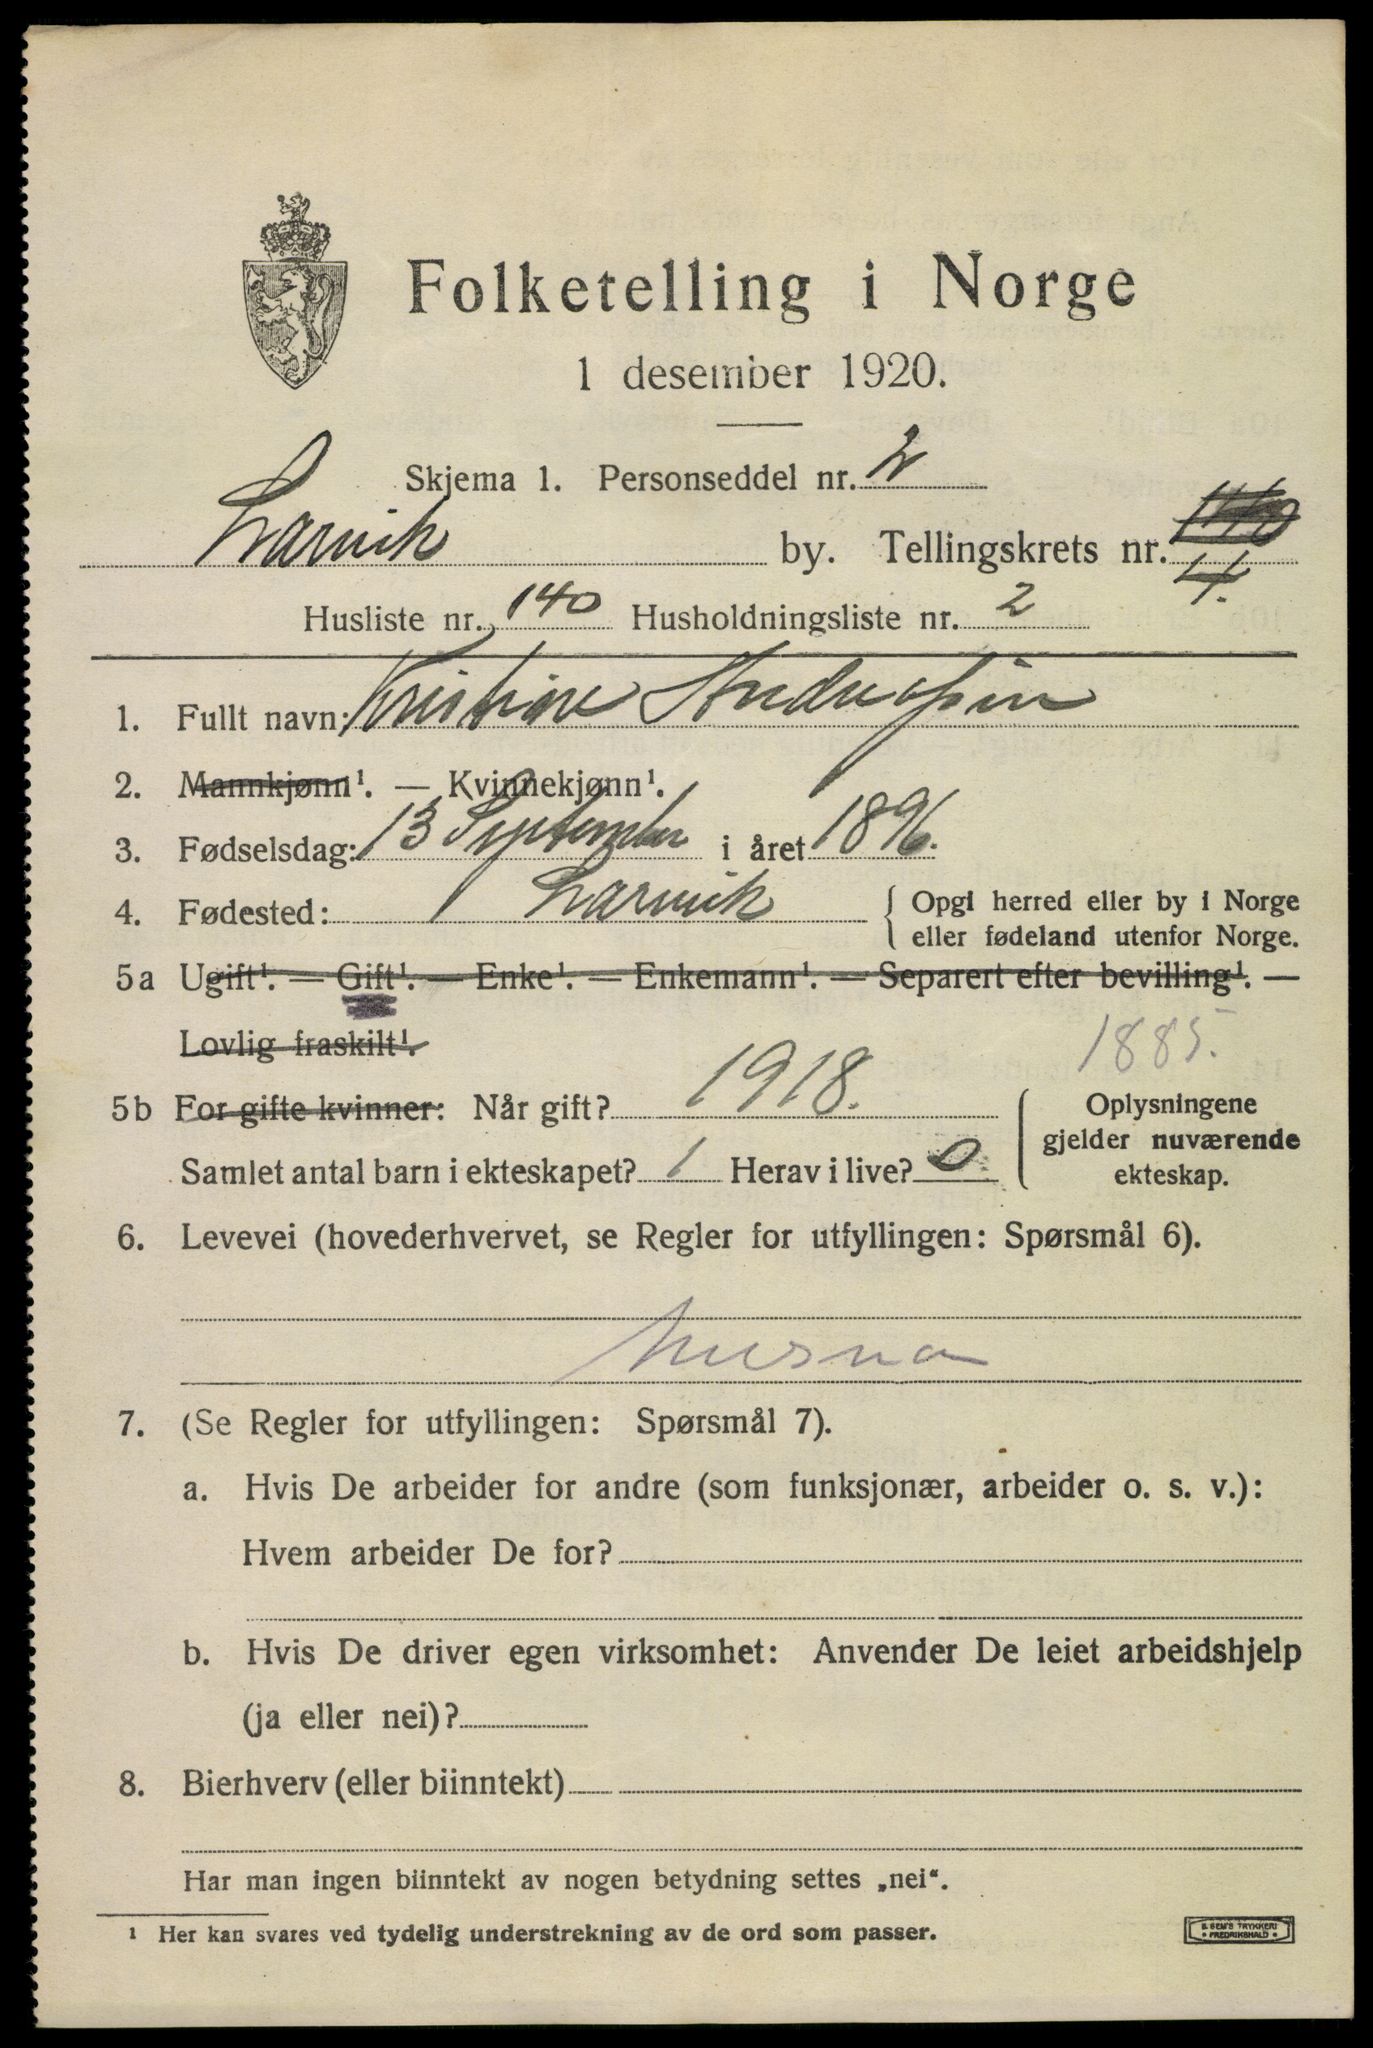 Folketelling i Norge
1 desember 1920.
Skjema 1. Personseddel nr. 2
Larvik by. Tellingskrets nr. 140 4.
Husliste nr. 140 Husholdningsliste nr. 2
1. Fullt navn: Kristine Andresen
2. Mannkjønn¹. — Kvinnekjønn¹.
3. Fødselsdag: 13 September i året 1896.
4. Fødested: Larvik { Opgi herred eller by i Norge
eller fødeland utenfor Norge.
5a Ugift¹. — Gift¹. — Enke¹. — Enkemann¹. — Separert efter bevilling¹. —
Lovlig fraskilt¹.
1885.
5b For gifte kvinner: Når gift? 1918. Oplysningene
gjelder nuværende
Samlet antal barn i ekteskapet? 1 Herav i live? 0 ekteskap.
6. Levevei (hovederhvervet, se Regler for utfyllingen: Spørsmål 6).
7. (Se Regler for utfyllingen: Spørsmål 7).
a. Hvis De arbeider for andre (som funksjonær, arbeider o. s. v.):
Hvem arbeider De for?
b. Hvis De driver egen virksomhet: Anvender De leiet arbeidshjelp
(ja eller nei)?
8. Bierhverv (eller biinntekt)
Har man ingen biinntekt av nogen betydning settes „nei“.
¹ Her kan svares ved tydelig understrekning av de ord som passer.
B. SEM'S TRYKKERI
• FREDRIKSHALD •